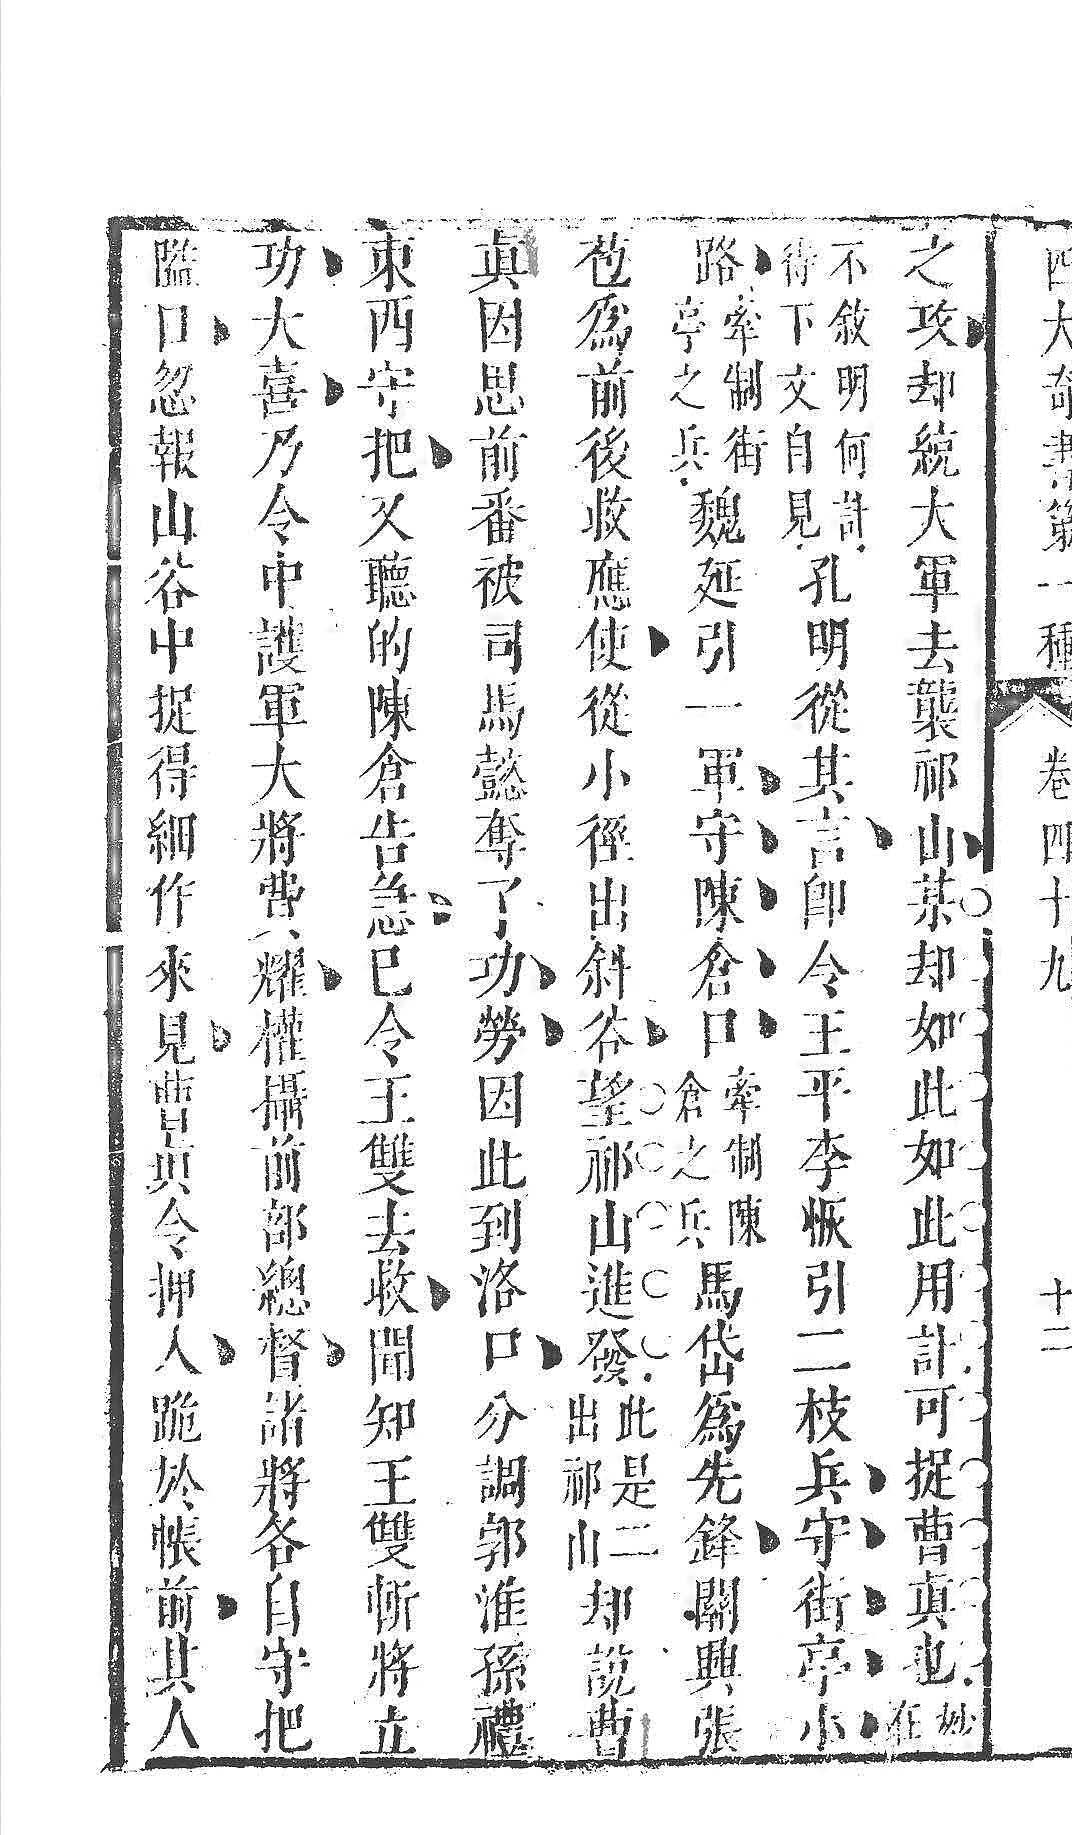 四大奇書第一種 卷四十九 十二
之攻却統大軍去襲祁山某却如此如此用計可捉曹真也妙在
不敘明何計待下文自見孔明從其言卽令王平李恢引二枝兵守街亭小
路牽制街亭之兵魏延引一軍守陳倉口牽制陳倉之兵馬岱爲先鋒關興張
苞爲前後救應使從小徑出斜谷望祁山進發此是二出祁山却說曹
眞因思前番被司馬懿奪了功勞因此到洛口分調郭淮孫禮
東西守把又聽的陳倉告急已令王雙去救聞知王雙斬將立
功大喜乃令中護軍大將費耀權攝前部總督諸將各自守把
隘口忽報山谷中捉得細作來見曹眞令押人跪於帳前其人